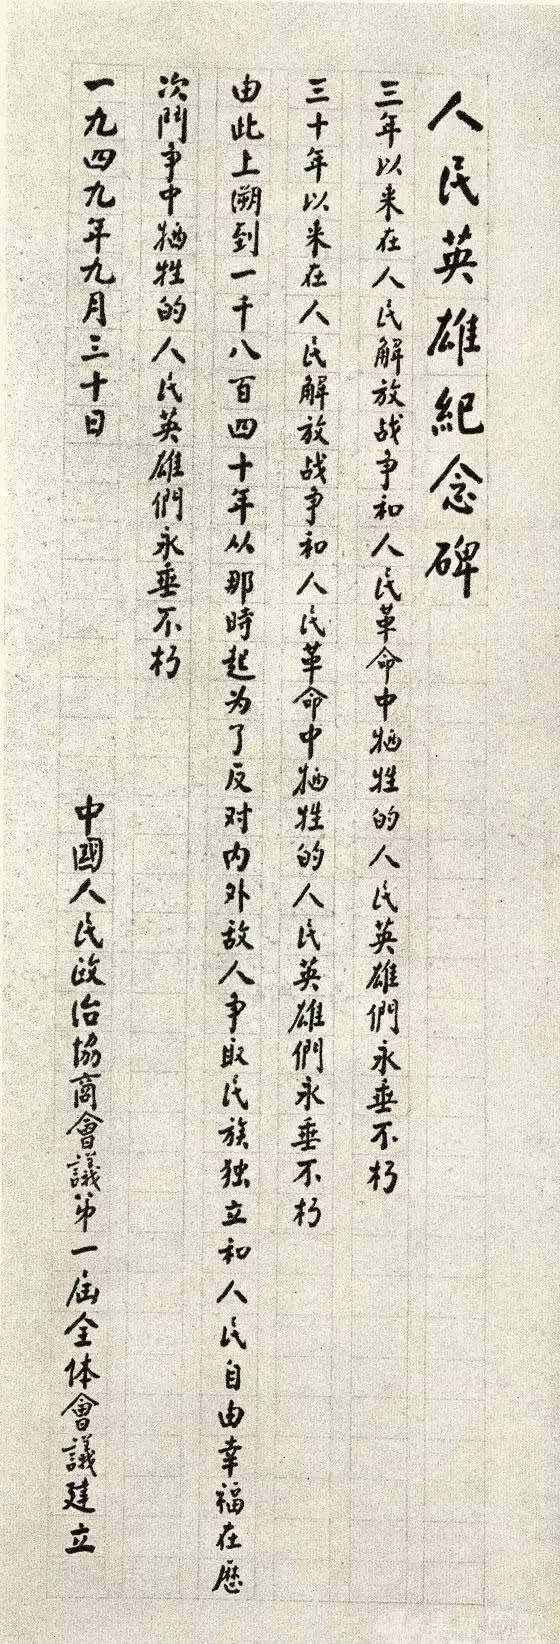 人民英雄紀念碑
三年以来在人民解放战争和人民革命中牺牲的人民英雄們永垂不朽
三十年以来在人民解放战争和人民革命中牺牲的人民英雄們永垂不朽
由此上溯到一千八百四十年从那時起为了反对内外敌人争取民族独立和人民自由幸福在歷
次鬥争中牺牲的人民英雄們永垂不朽
一九四九年九月三十日
中國人民政治協商會議第一屆全体會議建立